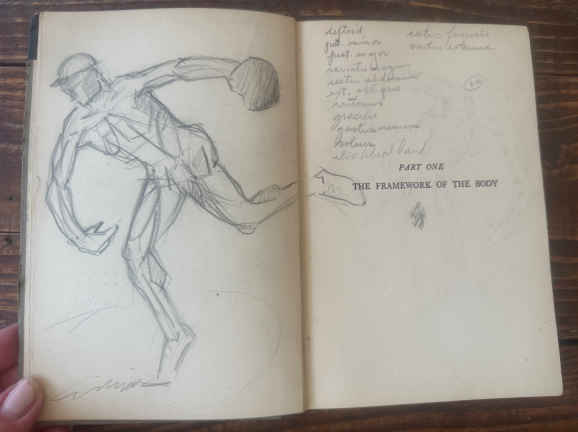 deltoid
pect. minor
pect. major
rectus femoris
serratus mag
vastus externus
rectus abdominis
ext. oblique
sartorius
gracilis
gastrocnemius
soleus
iliotibial band
PART ONE
THE FRAMEWORK OF THE BODY